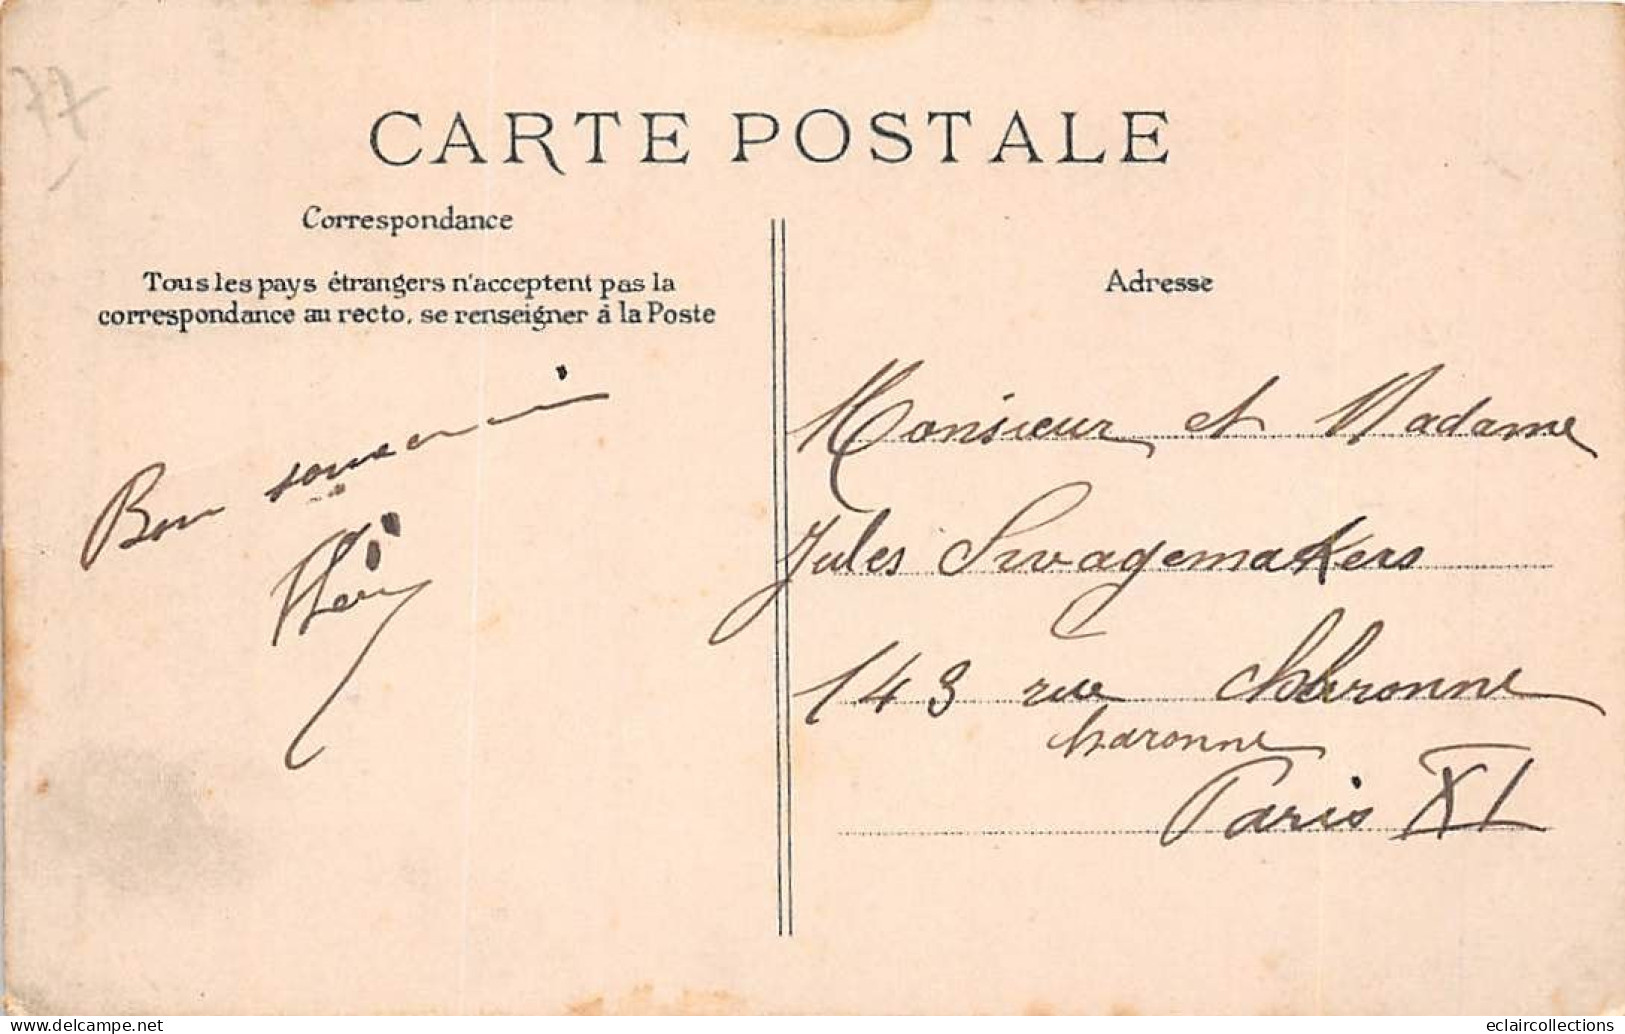 77
CARTE POSTALE
Correspondance
Tous les pays étrangers n'acceptent pas la
correspondance au recto, se renseigner à la Poste
Bon souvenir
Adresse
Monsieur et Madame
Jules Swagemakers
143 rue Charonne
haronne
Paris XI
delcampe.net
eclaircollections